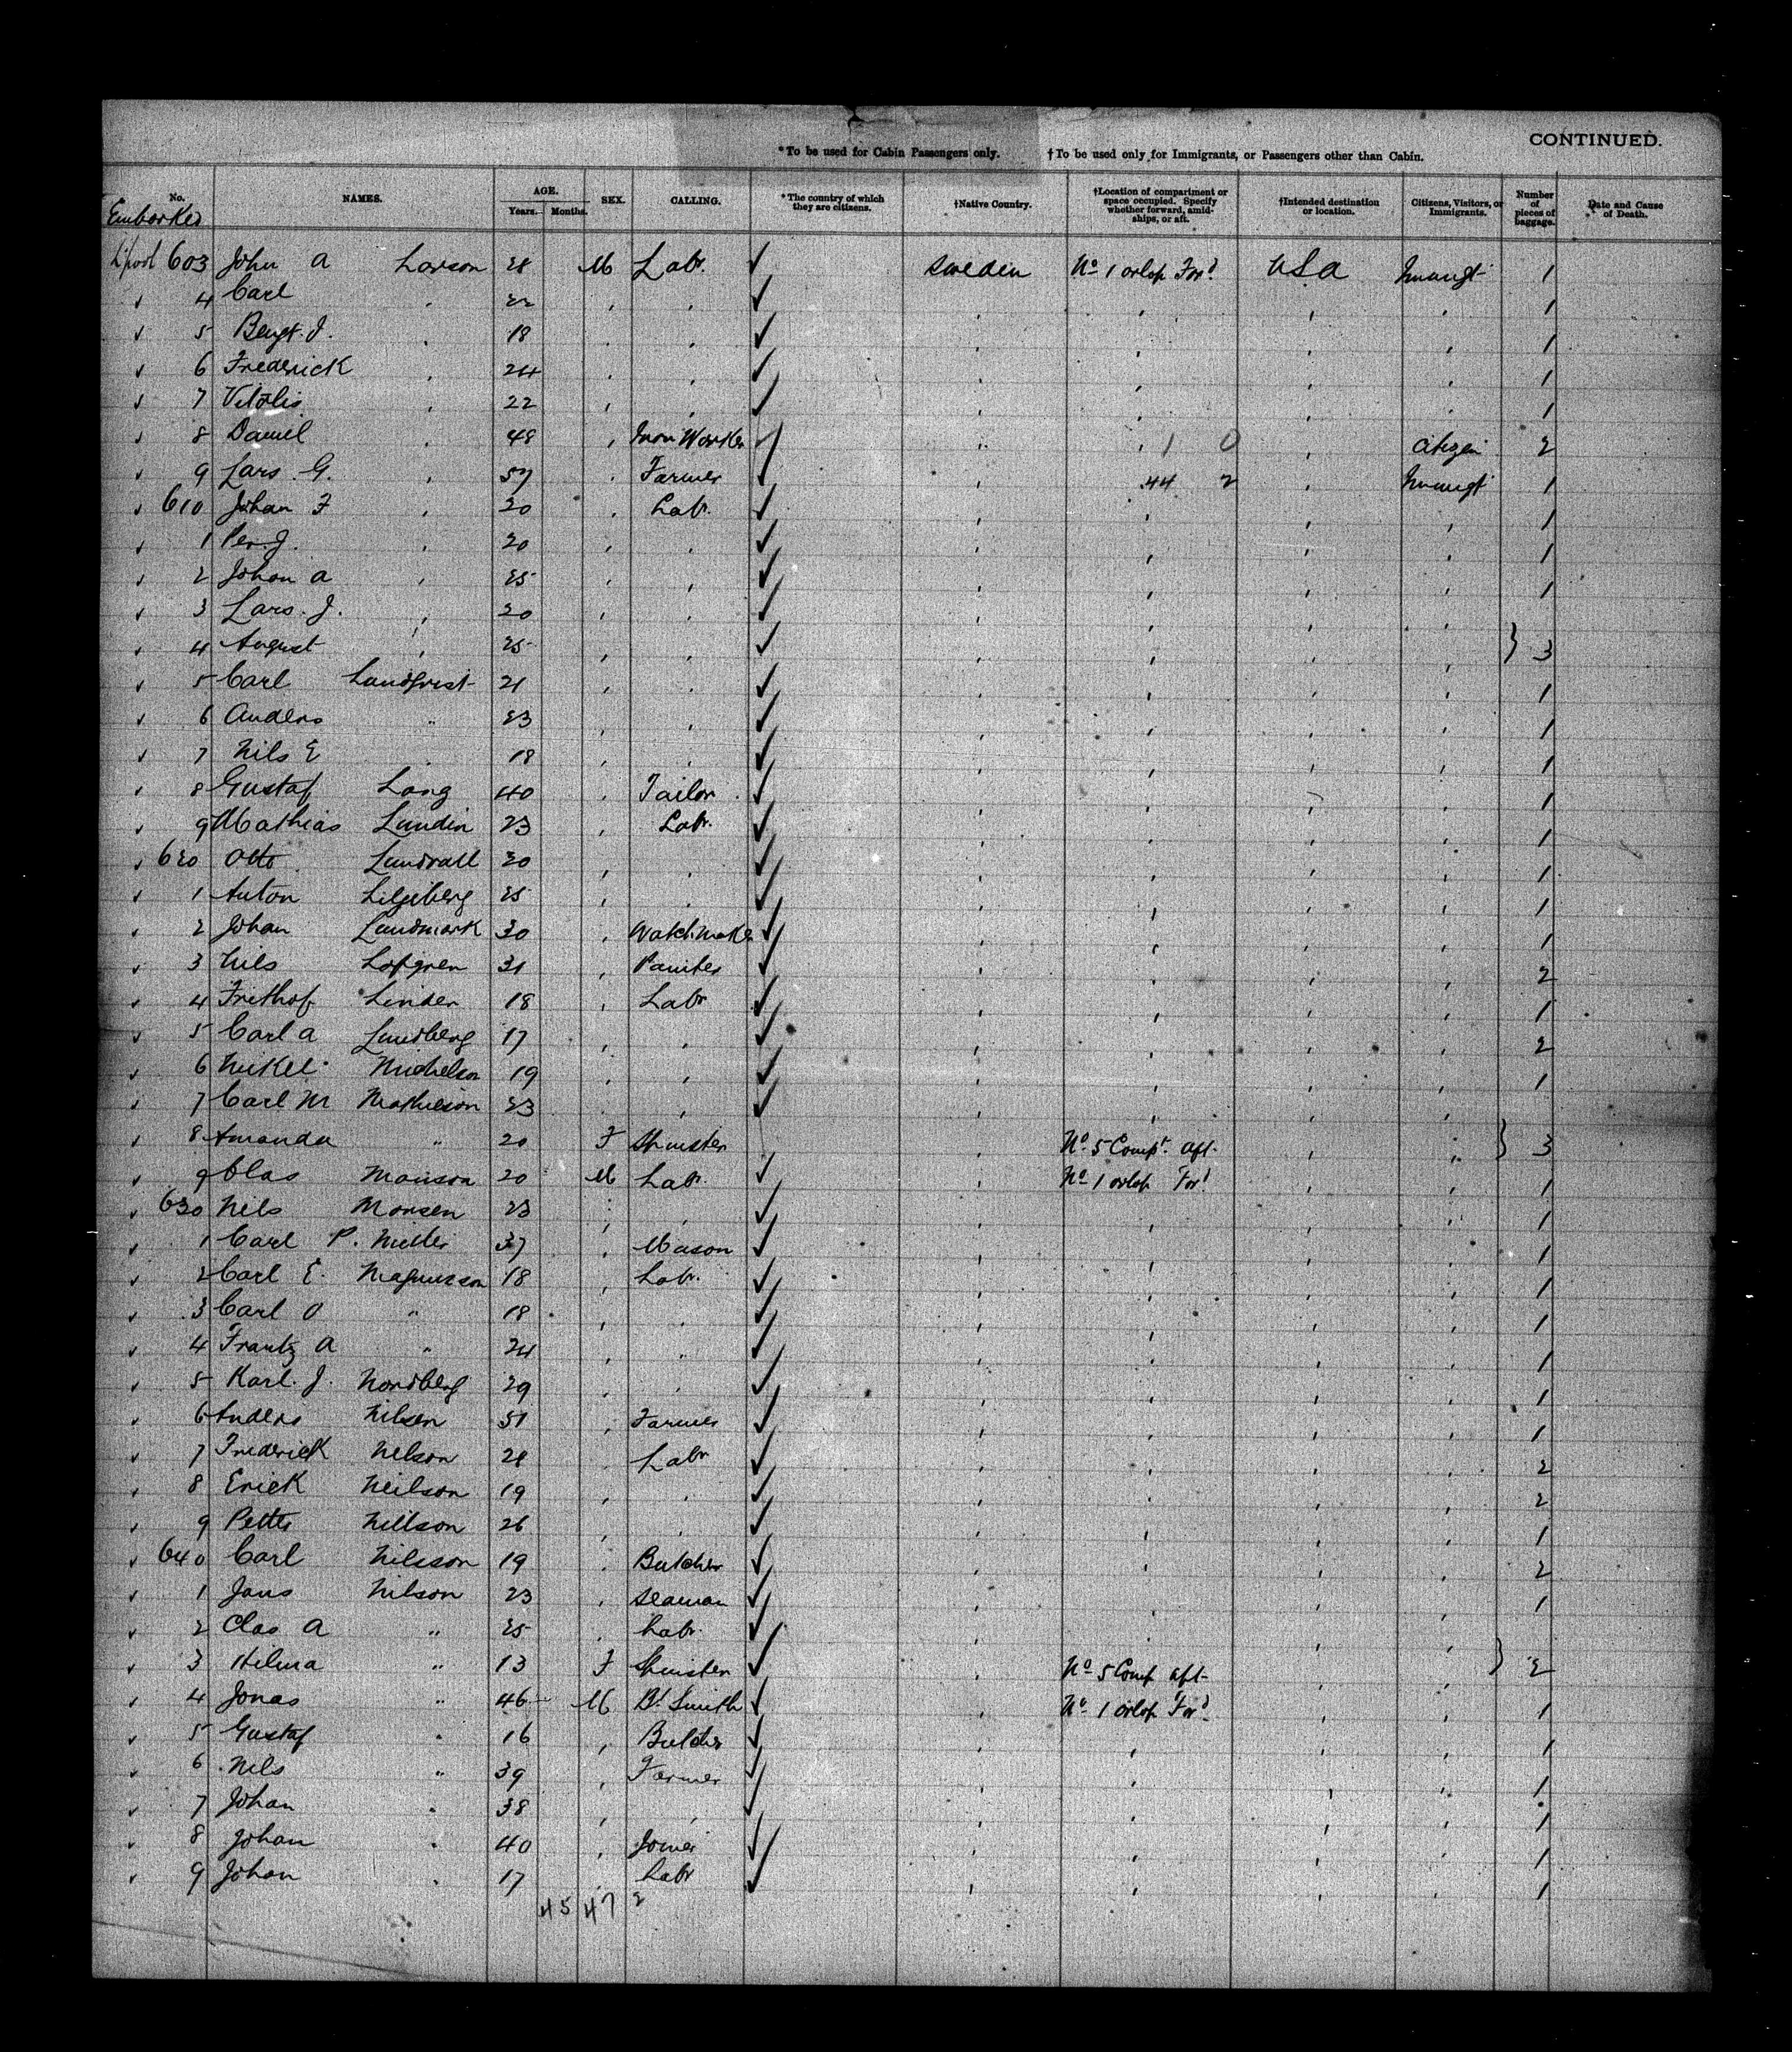 CONTINUED.
*To be used for Cabin Passengers only. †To be used only for Immigrants, or Passengers other than Cabin.
No. NAMES. AGE. Years. Months. SEX. CALLING. *The country of which they are citizens. †Native Country. †Location of compartment or space occupied. Specify whether forward, amidships, or aft. †Intended destination or location. Citizens, Visitors, or Immigrants. Number of pieces of baggage. Date and Cause of Death.
Embarked
L'pool 603 John A Larson 28 M Labr. ✓ Sweden No 1 orlop Ford USA Immigt 1
✓ 4 Carl " 22 " " ✓ " " " " 1
✓ 5 Bengt. J. " 18 " " ✓ " " " " 1
✓ 6 Frederick " 24 " " ✓ " " " " 1
✓ 7 " 22 " " ✓ " " " " 1
✓ 8 Daniel " 48 " Iron Worker ✓ " " 1 0 " Citizen 2
✓ 9 Lars. G. " 57 " Farmer ✓ " 44 2 " Immigt 1
✓ 610 Johan F " 20 " Labr. ✓ " " " " 1
✓ 1 Per. J. " 20 " " ✓ " " " " 1
✓ 2 Johan A " 25 " " ✓ " " " " 1
✓ 3 Lars. J. " 20 " " ✓ " " " "
✓ 4 August " 25 " " ✓ " " " " } 3
✓ 5 Carl Lundqvist 21 " " ✓ " " " " 1
✓ 6 Anders " 23 " " ✓ " " " " 1
✓ 7 Nils E " 18 " " ✓ " " " " 1
✓ 8 Gustaf Lang 40 " Tailor ✓ " " " " 1
✓ 9 Mathias Lundin 23 " Labr. ✓ " " " " 1
✓ 620 Otto Lundvall 20 " " ✓ " " " " 1
✓ 1 Anton Liljeberg 25 " " ✓ " " " " 1
✓ 2 Johan Lundmark 30 " Watchmaker ✓ " " " " 1
✓ 3 Nils Lofgren 31 " Painter ✓ " " " " 2
✓ 4 Frithof Linden 18 " Labr ✓ " " " " 1
✓ 5 Carl A Lundberg 17 " " ✓ " " " " 2
✓ 6 Mikel Michelson 19 " " ✓ " " " " 1
✓ 7 Carl M Mathieson 23 " " ✓ " " " "
✓ 8 Amanda " 20 F Spinster " No 5 Compt. Aft. " " } 3
✓ 9 Clas Monson 20 M Labr. ✓ " No 1 orlop Ford " " 1
✓ 630 Nils Monsen 23 " " ✓ " " " " 1
✓ 1 Carl P. Miller 37 " Mason ✓ " " " " 1
✓ 2 Carl E. Magnusson 18 " Labr. ✓ " " " " 1
✓ 3 Carl O " 18 " " ✓ " " " " 1
✓ 4 Frantz A " 24 " " ✓ " " " " 1
✓ 5 Karl. J. Nordberg 29 " " ✓ " " " " 1
✓ 6 Anders Nilsen 51 " Farmer ✓ " " " " 1
✓ 7 Frederick Nelson 28 " Labr ✓ " " " " 2
✓ 8 Erick Neilson 19 " " ✓ " " " " 2
✓ 9 Petter Nillson 26 " " ✓ " " " " 1
✓ 640 Carl Nilsson 19 " Butcher ✓ " " " " 2
✓ 1 Jans Nilson 23 " Seaman ✓ " " " " 1
✓ 2 Clas A " 25 " Labr. ✓ " " " "
✓ 3 Hilma " 13 F Spinster ✓ " No 5 Comp Aft " " } 2
✓ 4 Jonas " 46 M Bl Smith ✓ " No 1 orlop Ford " " 1
✓ 5 Gustaf " 16 " Butcher ✓ " " " " 1
✓ 6 Nils " 39 " Farmer ✓ " " " " 1
✓ 7 Johan " 38 " " ✓ " " " " 1
✓ 8 Johan " 40 " Joiner ✓ " " " " 1
✓ 9 Johan " 17 " Labr ✓ " " " " 1
45 47 2